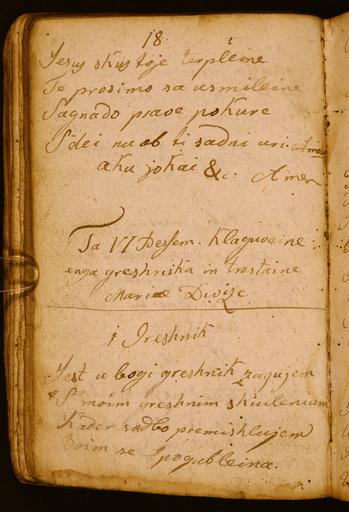 18
Jesus skus toje terpleine
Te prosimo sa usmileine
Sagnado prave pokure
Sdei nu ob ti sadni uri. Amen
aku jokai &c: Amen
Ta 17 Dessem. Klaguvaine
enga greshnika in trostaine
Mariae Divize
1 Greshnik
Jest u bogi greshnik zagujem
S' moim greshnim shiuleniam
Kader sadbo premishlujem
Boim se spogubleina.